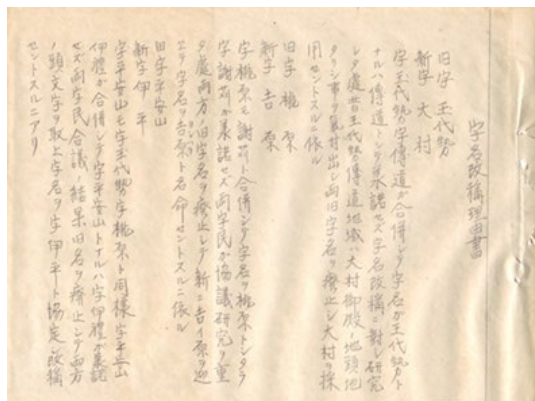 字名改稱理由書
旧字 玉代勢
新字 大村
字玉代勢字傳道が合併シテ字名が玉代勢ト
ナルハ傳道トシテ承諾セズ字名改稱ニ對シ研究
シタ處昔玉代勢傳道地域ハ大村御殿ノ地頭地
タリシ事ヲ氣付出シ両旧字名ヲ廢止シ大村ヲ採
用セントスルニ依ル
旧字 桃原
新字 吉原
字桃原モ謝苅ト合併シテ字名ヲ桃原トシタラ
字謝苅が承諾セズ両字民が協議研究ヲ重
タ處両方ノ旧字名ヲ廢止シテ新ニ吉イ原ヲ迎
エテ字名ヲ吉原ト名命セントスルニ依ル
旧字平安山
新字伊平
字平安山モ字玉代勢字桃原ト同様字平安山
伊禮が合併シテ字平安山トナルハ字伊禮が承諾
セズ両字民合議ノ結果旧名ヲ廢止シテ両方
ノ頭文字ヲ取上字名ヲ字伊平ト協定改稱
セントスルニアリ